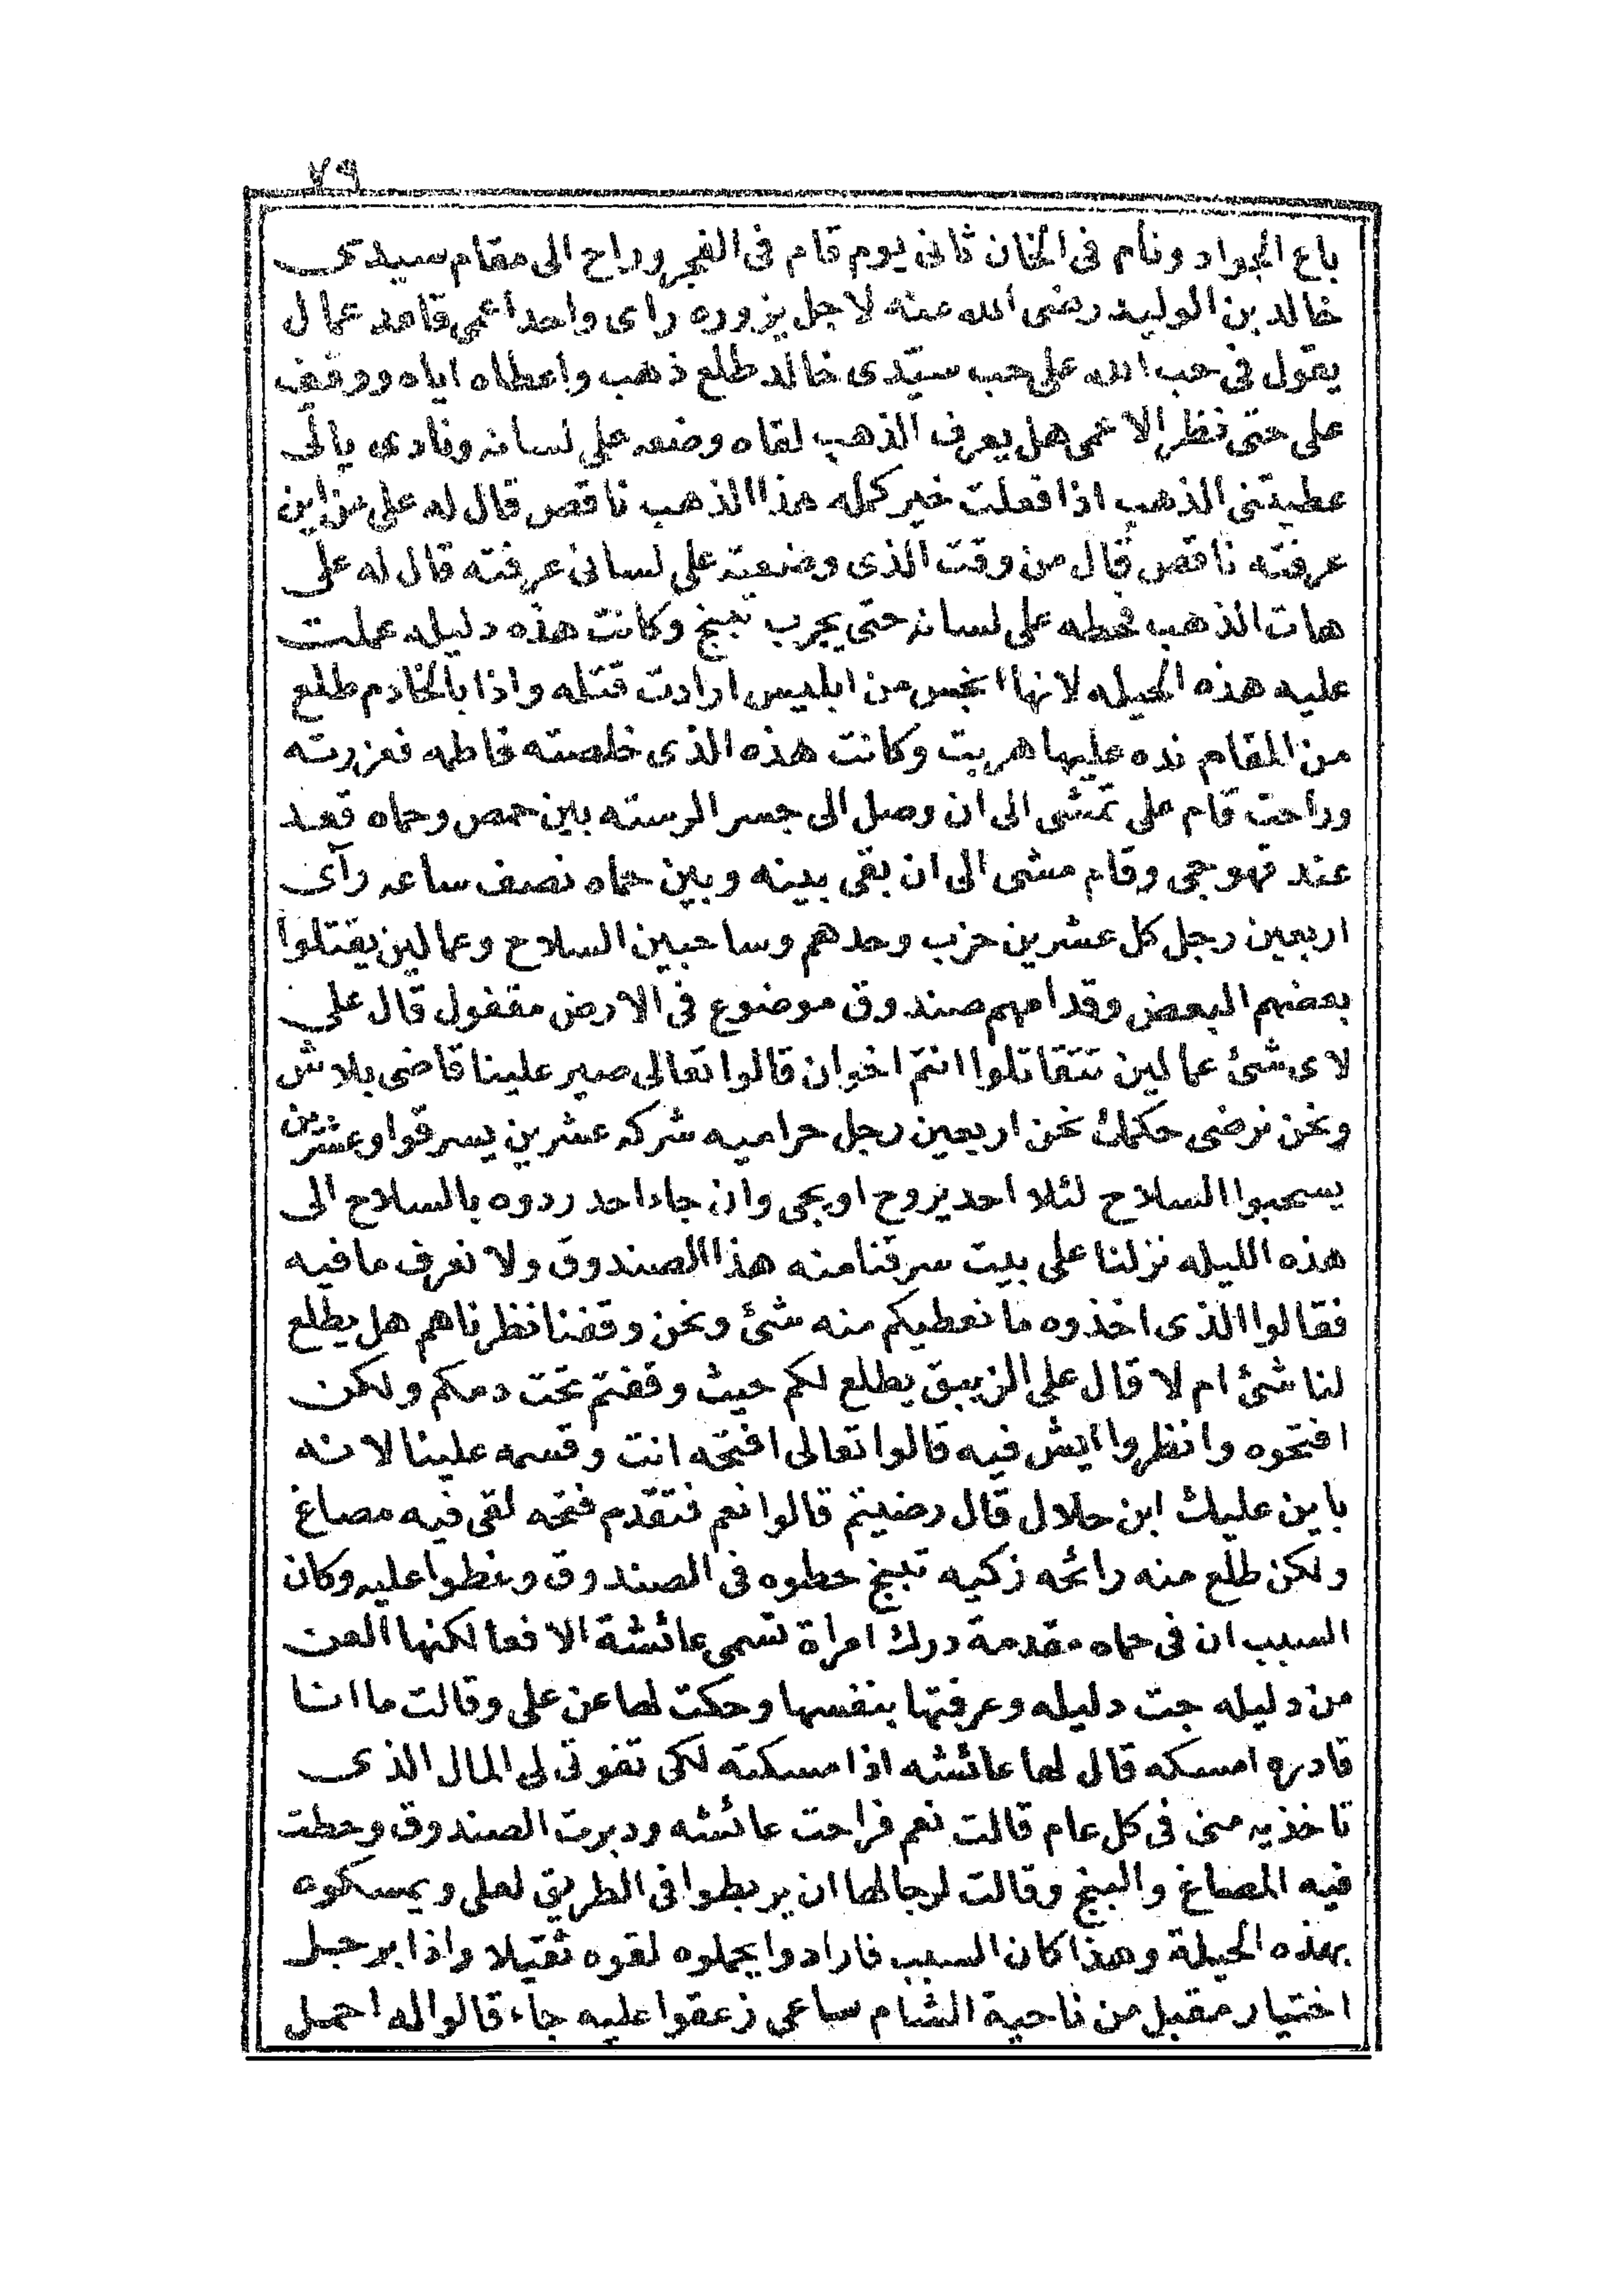 ٧٩
باع الجواد ونام فى الخان ثانى يوم قام فى الفجر وراح الى مقام سيدى
خالد بن الوليد رضى الله عنه لاجل يزوره راى واحد اعمى قاعد عمال
يقول فى حب الله على حب سيّدى خالد طلع ذهب واعطاه اياه ووقف
على حتى نظر الاعمى هل يعرف الذهب لقاه وضعه على لسانه ونادى يالّى
عطيتنى الذهب اذا فعلت خير كمله هذا الذهب ناقص قال له على من اين
عرفته ناقص قال من وقت الذى وضعيته على لسانى عرفته قال له على
هات الذهب فحطه على لسانه حتى يجرب تبنج وكانت هذه دليله عملت
عليه هذه الحيله لانها انجس من ابليس ارادت قتله واذا بالخادم طلع
من المقام نده عليها هربت وكانت هذه الذى خلصته فاطمه فعزرته
وراحت قام على تمشى الى ان وصل الى جسر الرسته بين حمص وحماه قعد
عند قهوجى وقام مشى الى ان بقى بينه وبين حماه نصف ساعه رآى
اربعين رجل كل عشرين حزب وحدهم وساحبين السلاح وعمالين يقتلوا
بعضهم البعض وقدامهم صندوق موضوع فى الارض مقفول قال على
لاى شئ عمالين تتقاتلوا انتم اخوان قالوا تعالى صير علينا قاضى بلاش
ونحن نرضى حكمك نحن اربعين رجل حراميه شركه عشرين يسرقوا وعشرين
يسحبوا السلاح لئلا احد يروح او يجى وان جاء احد ردوه بالسلاح الى
هذه الليله نزلنا على بيت سرقنا منه هذا الصندوق ولا نعرف ما فيه
فقالوا الذى اخذوه ما نعطيكم منه شئ ونحن وقفنا نظرناهم هل يطلع
لنا شئ ام لا قال على الزيبق يطلع لكم حيث وقفتم تحت دمكم ولكن
افتحوه وانظروا ايش فيه قالوا تعالى افتحه انت وقسمه علينا لانه
باين عليك ابن حلال قال رضيتم قالوا نعم فتقدم فتحه لقى فيه مصاغ
ولكن طلع منه رائحه زكيه تبنج حطوه فى الصندوق وغطوا عليه وكان
السبب ان فى حماه مقدمة درك امراة تسمى عائشة الافعا لكنها العن
من دليله جت دليله وعرفتها بنفسها وحكت لها عن على وقالت ما انا
قادره امسكه قال لها عائشه اذا مسكته لكى تفوتى لى المال الذى
تاخذيه منى فى كل عام قالت نعم فراحت عائشه ودبرت الصندوق وحطت
فيه المصاغ والبنج وقالت لرجالها ان يربطوا فى الطريق لعلى ويمسكوه
بهذه الحيلة وهذا كان السبب فارادوا يحملوه لقوه ثقيلا واذا برجل
اختيار مقبل من ناحية الشام ساعى زعقوا عليه جاء قالوا له احمل